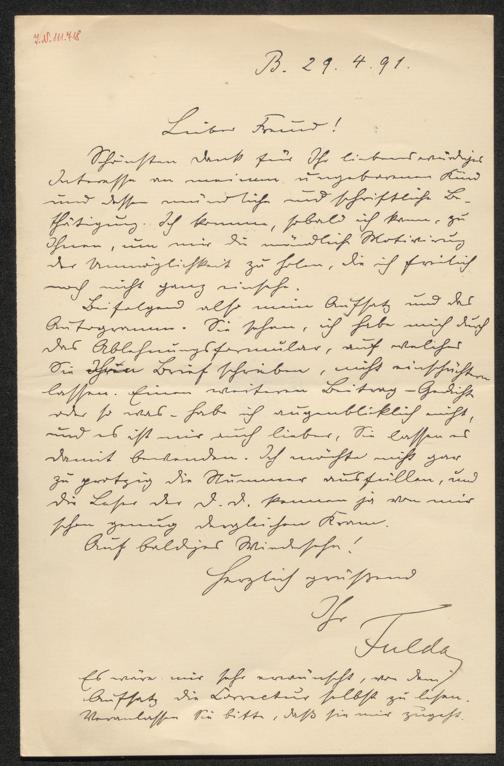 I.N. 111.718
B. 29. 4. 91.
Lieber Freund!
Schönsten Dank für Ihr liebenswürdiges
Interesse an meinem ungeborenen Kind
und dessen mündliche und schriftliche Be-
thätigung. Ich komme, sobald ich kann, zu
Ihnen, um mir die mündliche Motivirung
der Unmöglichkeit zu holen, die ich freilich
noch nicht ganz einsehe.
Beifolgend also mein Aufsatz und das
Autogramm. Sie sehen, ich habe mich durch
das Ablehnungsformular, auf welches
Sie Ihren Brief schrieben, nicht einschüchtern
lassen. Einen weiteren Beitrag – Gedicht
oder so was – habe ich augenblicklich nicht,
und es ist mir auch lieber, Sie lassen es
damit bewenden. Ich möchte nicht gar
zu protzig die Nummer ausfüllen, und
die Leser der D. D. kennen ja von mir
schon genug dergleichen Kram.
Auf baldiges Wiedersehn!
Herzlich grüßend
Ihr
Fulda
Es wäre mir sehr erwünscht, von dem
Aufsatz die Correctur selbst zu lesen.
Veranlassen Sie bitte, daß sie mir zugeht.